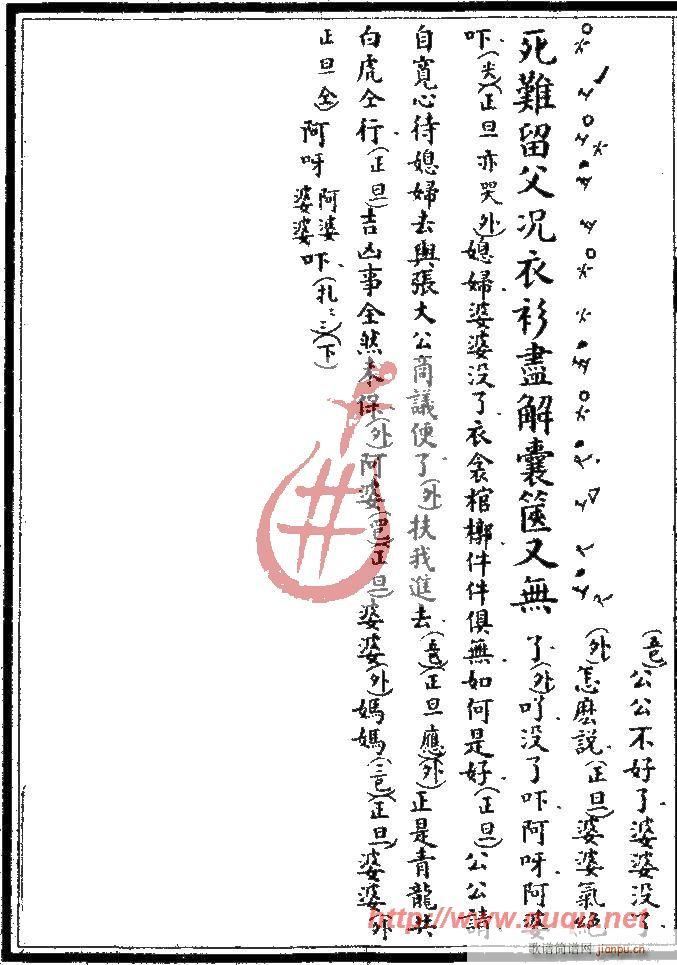 死難留父况衣衫盡解囊篋又無
(吾㔾)公公不好了婆婆没了
(外)怎麽説(正旦)婆婆氣絶
了(外)吖没了吓阿呀阿婆
吓(哭)(正旦亦哭)(外)媳婦婆婆没了衣衾棺槨件件俱無如何是好(正旦)公公請
自寬心待媳婦去與張大公商議便了(外)扶我進去(正旦應)(外)正是青龍共
白虎仝行(正旦)吉凶事全然未保(外)阿婆(正旦)婆婆(外)媽媽(正旦)婆婆外
正旦仝)阿呀阿婆婆婆吓(扎三)(下)
http://www.ququ.net
歌谱简谱网
jianpu.cn